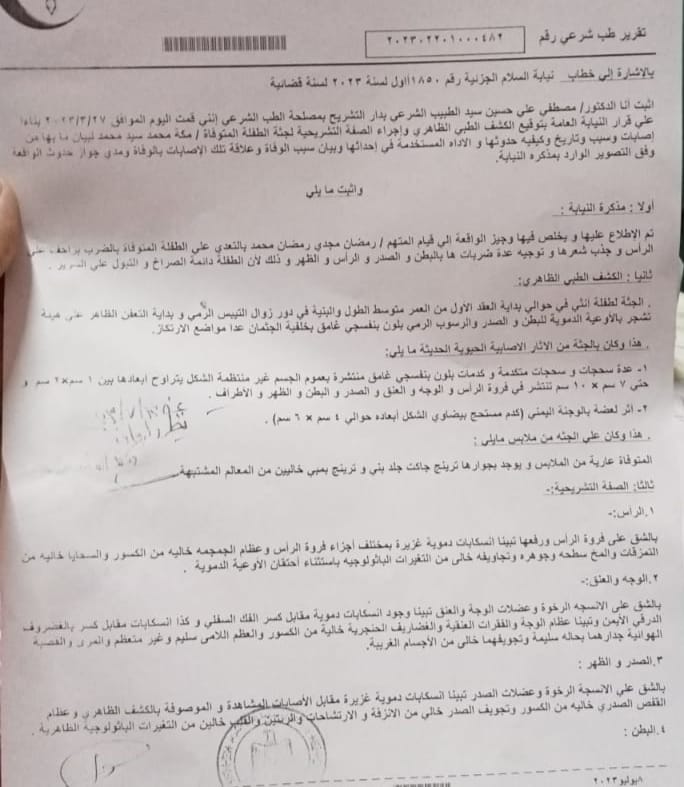 تقرير طب شرعي رقم ٢٠٢٣٠٢٢٠١٠٠٠٤٨٢
بالإشارة إلي خطاب نيابة السلام الجزئية رقم ١٨٥٠ اول لسنة ٢٠٢٣ لسنة قضائية
اثبت أنا الدكتور/ مصطفي علي حسين سيد الطبيب الشرعي بدار التشريح بمصلحة الطب الشرعي إنني قمت اليوم الموافق ٢٠٢٣/٣/٢٧ بناءا
علي قرار النيابة العامة بتوقيع الكشف الطبي الظاهري وإجراء الصفة التشريحية لجثة الطفلة المتوفاة / مكة محمد سيد محمد لبيان ما بها من
إصابات وسبب وتاريخ وكيفيه حدوثها و الاداه المستخدمة في إحداثها وبيان سبب الوفاة وعلاقة تلك الإصابات بالوفاة ومدي جواز حدوث الواقعة
وفق التصوير الوارد بمذكرة النيابة.
واثبت ما يلي
أولا : مذكرة النيابة :
تم الإطلاع عليها و يخلص فيها وجيز الواقعة إلي قيام المتهم / رمضان مجدي رمضان محمد بالتعدي علي الطفلة المتوفاة بالضرب علي
الرأس و جذب شعرها و توجيه عدة ضربات ها بالبطن و الصدر و الرأس و الظهر و ذلك لأن الطفلة دائمة الصراخ و التبول علي السرير .
ثانيا : الكشف الطبي الظاهري:
. الجثة لطفلة أنثي في حوالي بداية العقد الأول من العمر متوسط الطول والبنية في دور زوال التيبس الرمي و بداية التعفن الظاهر علي هيئة
تشجر بالأوعية الدموية للبطن و الصدر والرسوب الرمي بلون بنفسجي غامق بخلفية الجثمان عدا مواضع الارتكاز.
. هذا وكان بالجثة من الآثار الاصابية الحيوية الحديثة ما يلي:
١- عدة سحجات و سحجات متكدمة و كدمات بلون بنفسجي غامق منتشرة بعموم الجسم غير منتظمة الشكل يتراوح أبعادها بين ١ سم×٢ سم و
حتي ٧ سم × ١٠ سم تنتشر في فروة الرأس و الوجه و العنق و الصدر و البطن و الظهر و الأطراف .
٢- أثر لعضة بالوجنة اليمني (كدم متسحج بيضاوي الشكل أبعاده حوالي ٤ سم × ٦ سم).
. هذا وكان علي الجثه من ملابس مايلي :
المتوفاة عارية من الملابس و يوجد بجوارها ترينج جاكت جلد بني و ترينج بمبي خاليين من المعالم المشتبهة.
ثالثا: الصفة التشريحية:-
١.الرأس:-
بالشق علي فروة الرأس ورفعها تبينا انسكابات دموية غزيرة بمختلف أجزاء فروة الرأس وعظام الجمجمه خاليه من الكسور والسحايا خاليه من
التمزقات والمخ سطحه وجوهره وتجاويفه خالي من التغيرات الباثولوجيه باستثناء أحتقان الأوعية الدموية .
٢.الوجه والعنق:-
بالشق علي الانسجه الرخوة وعضلات الوجة والعنق تبينا وجود انسكابات دموية مقابل كسر الفك السفلي و كذا انسكابات مقابل كسر بالغضروف
الدرقي الأيمن وتبينا عظام الوجة والفقرات العنقية والغضاريف الحنجرية خالية من الكسور والعظم اللامي سليم وغير متعظم والمرئ والقصبة
الهوائية جدارهما بحاله سليمة وتجويفهما خالي من الأجسام الغريبة.
٣.الصدر و الظهر :
بالشق علي الانسجة الرخوة وعضلات الصدر تبينا انسكابات دموية غزيرة مقابل الأصابات المشاهدة و الموصوفة بالكشف الظاهري و عظام
القفص الصدري خاليه من الكسور وتجويف الصدر خالي من الانزفة و الارتشاحات والرئتين والقلب خالين من التغيرات الباثولوجية الظاهرية .
٤.البطن :
٨ يوليو ٢٠٢٣